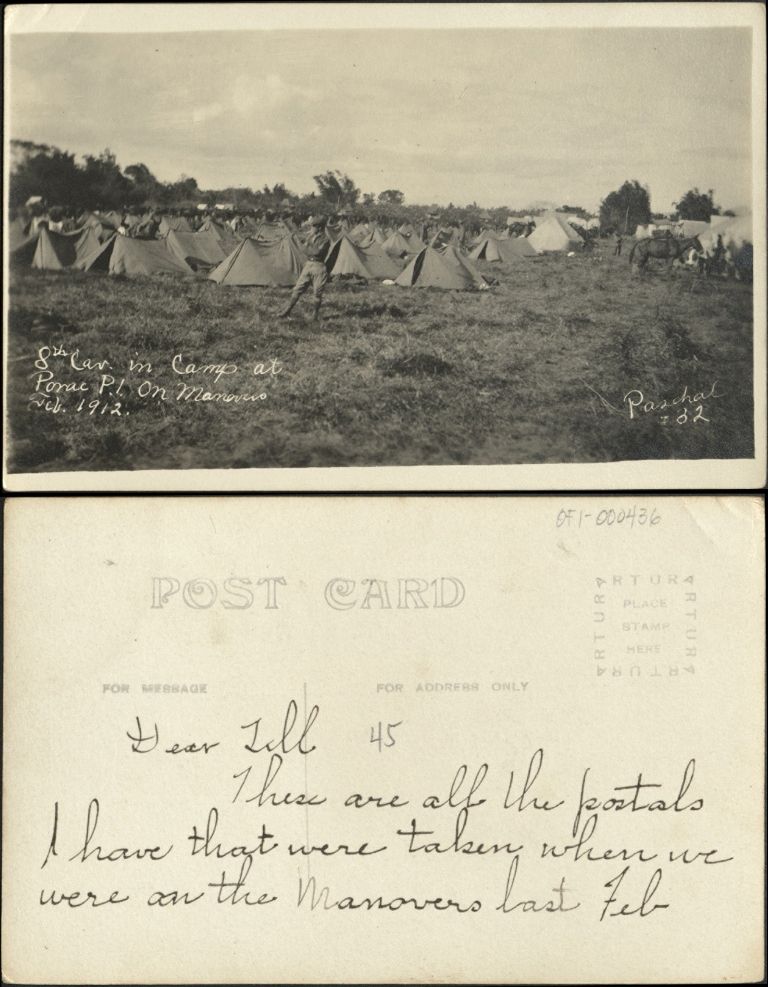 8th Cav. in Camp at
Porac P.I. On Manovers
Feb. 1912.
Paschal
-32
OF1-000436
POST CARD
ARTURA
ARTURA
PLACE
STAMP
HERE
ARTURA
ARTURA
FOR MESSAGE
FOR ADDRESS ONLY
Dear Lill 45
These are all the postals
I have that were taken when we
were on the Manovers last Feb